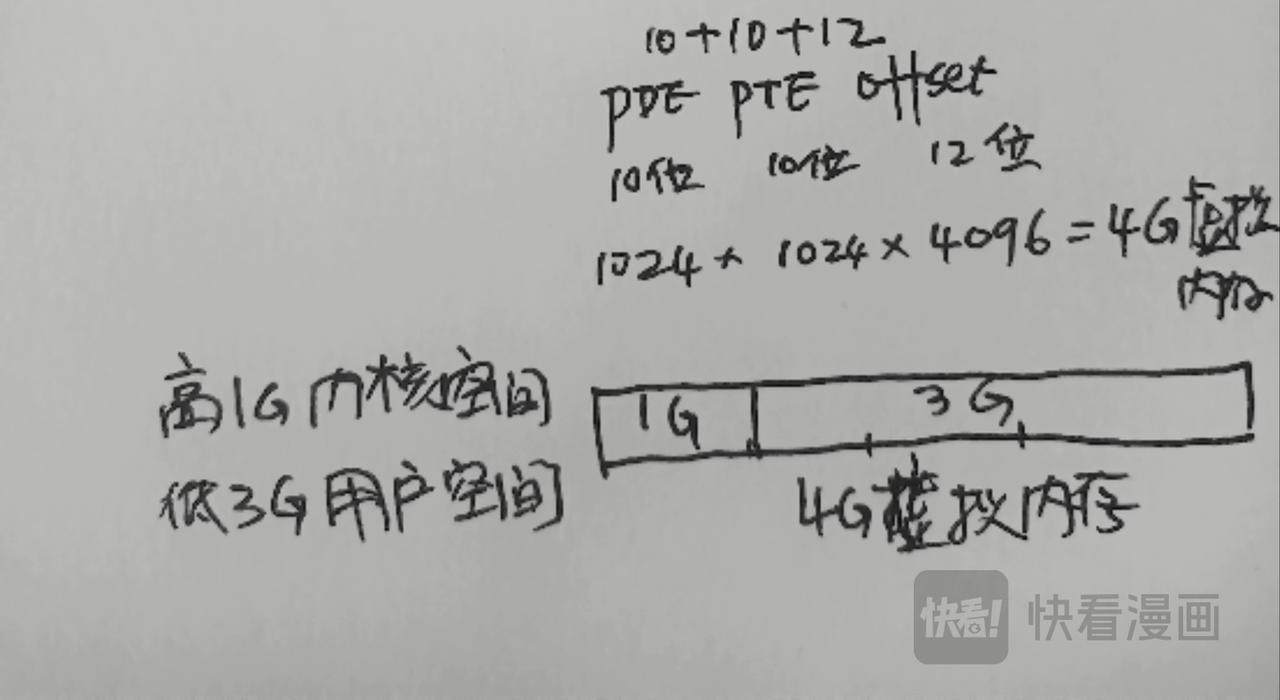 10+10+12
PDE PTE offset
10位 10位 12位
1024 × 1024 × 4096 = 4G虚拟
内存
高1G内核空间
1G 3G
低3G用户空间
4G虚拟内存
快看! 快看漫画